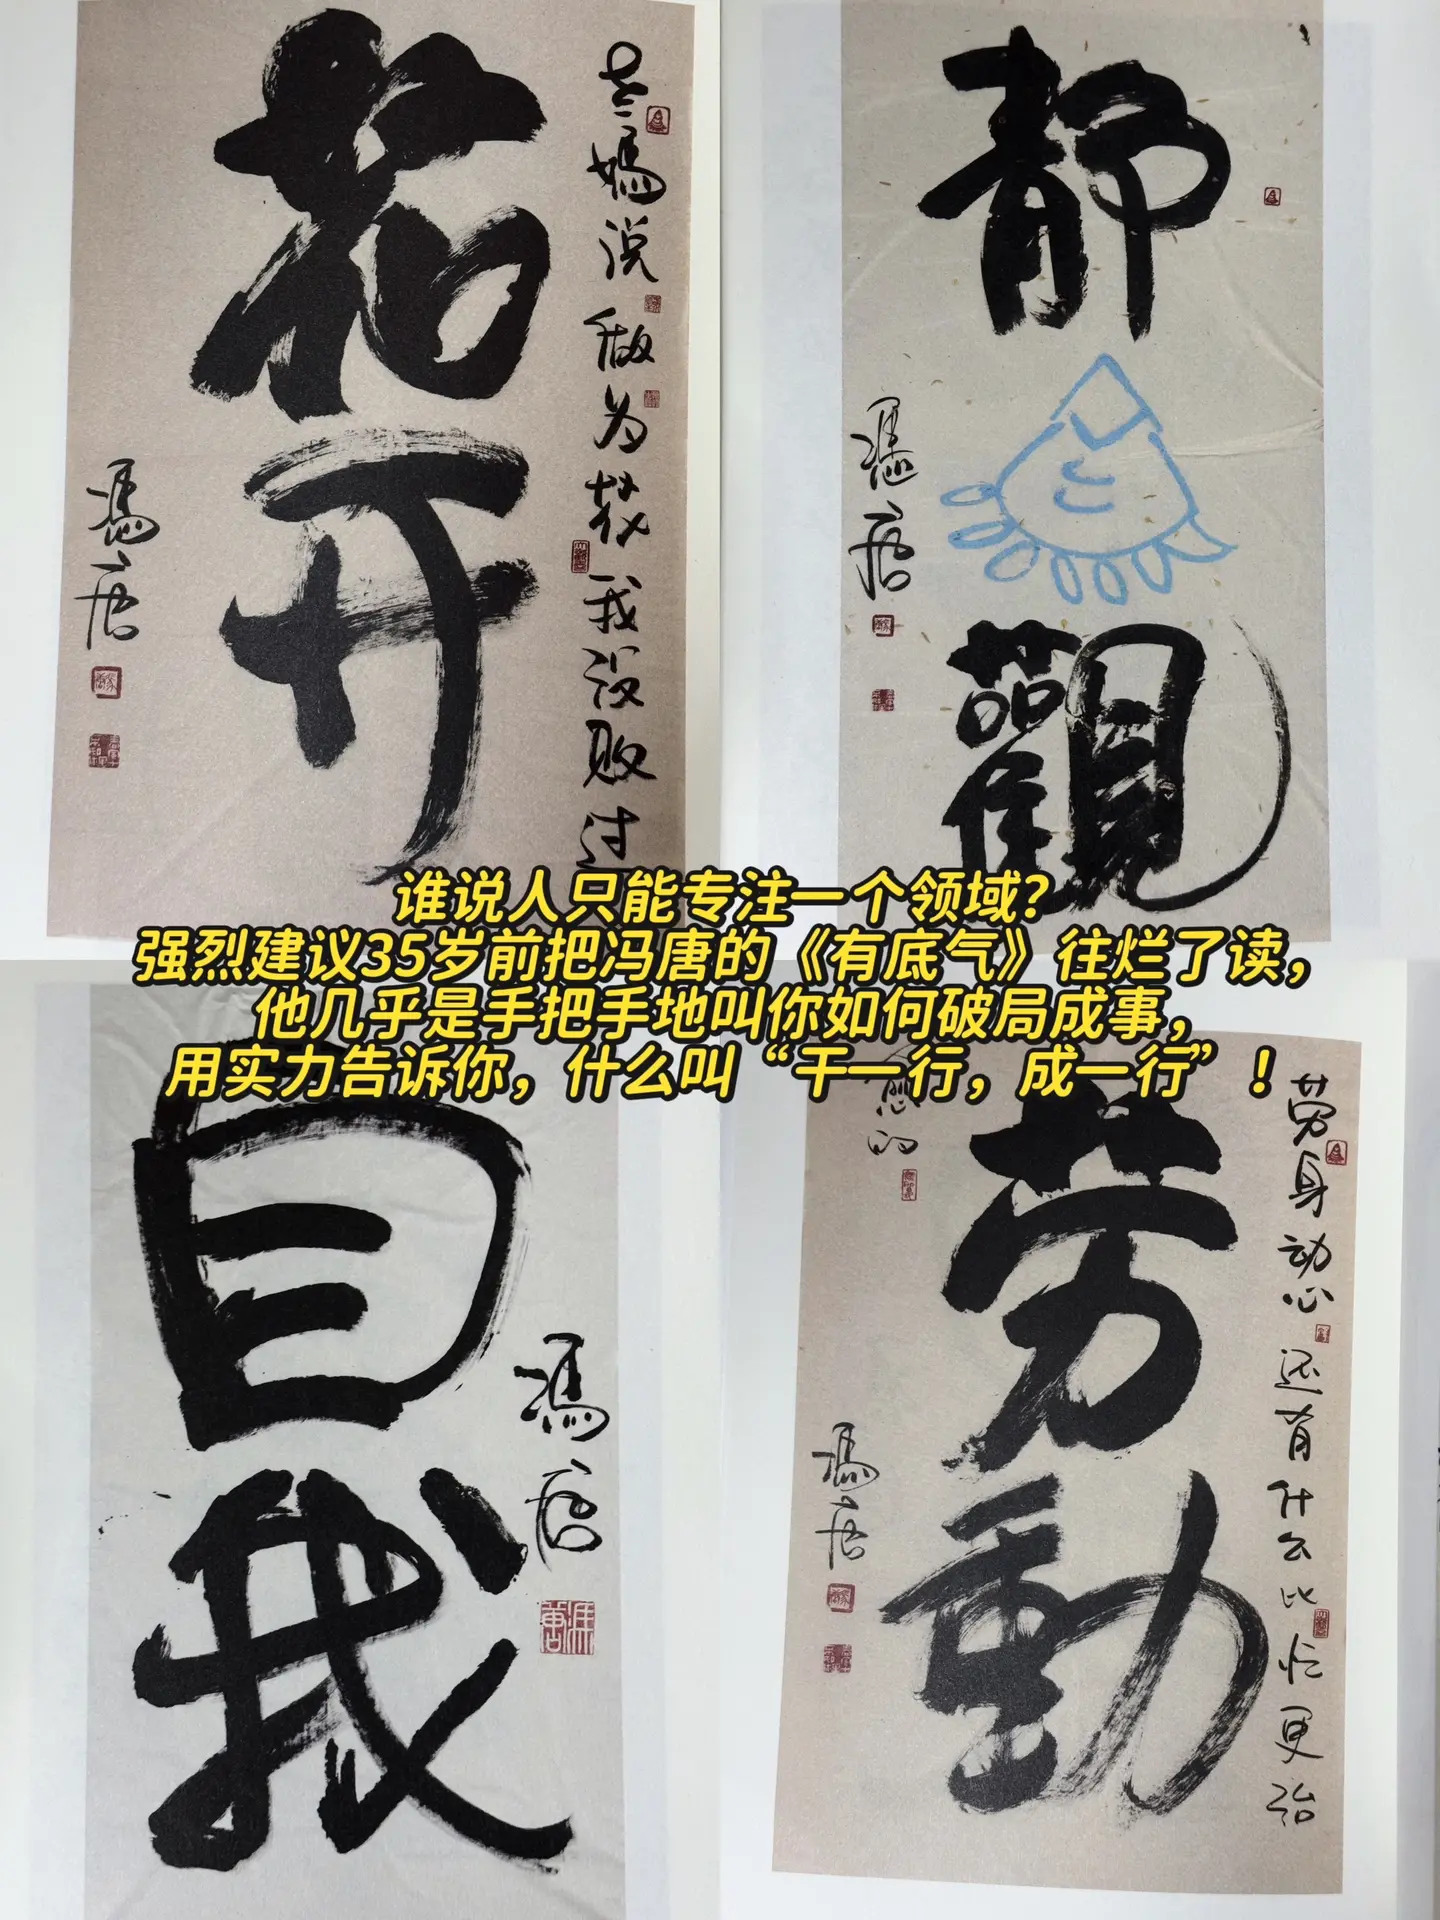 花开
老妈说做为花我没败过
冯唐
静
觀
冯唐
谁说人只能专注一个领域？
强烈建议35岁前把冯唐的《有底气》往烂了读，
他几乎是手把手地叫你如何破局成事，
用实力告诉你，什么叫“干一行，成一行”！
自我
冯唐
劳動
劳身动心还有什么比忙更治
愈的
冯唐